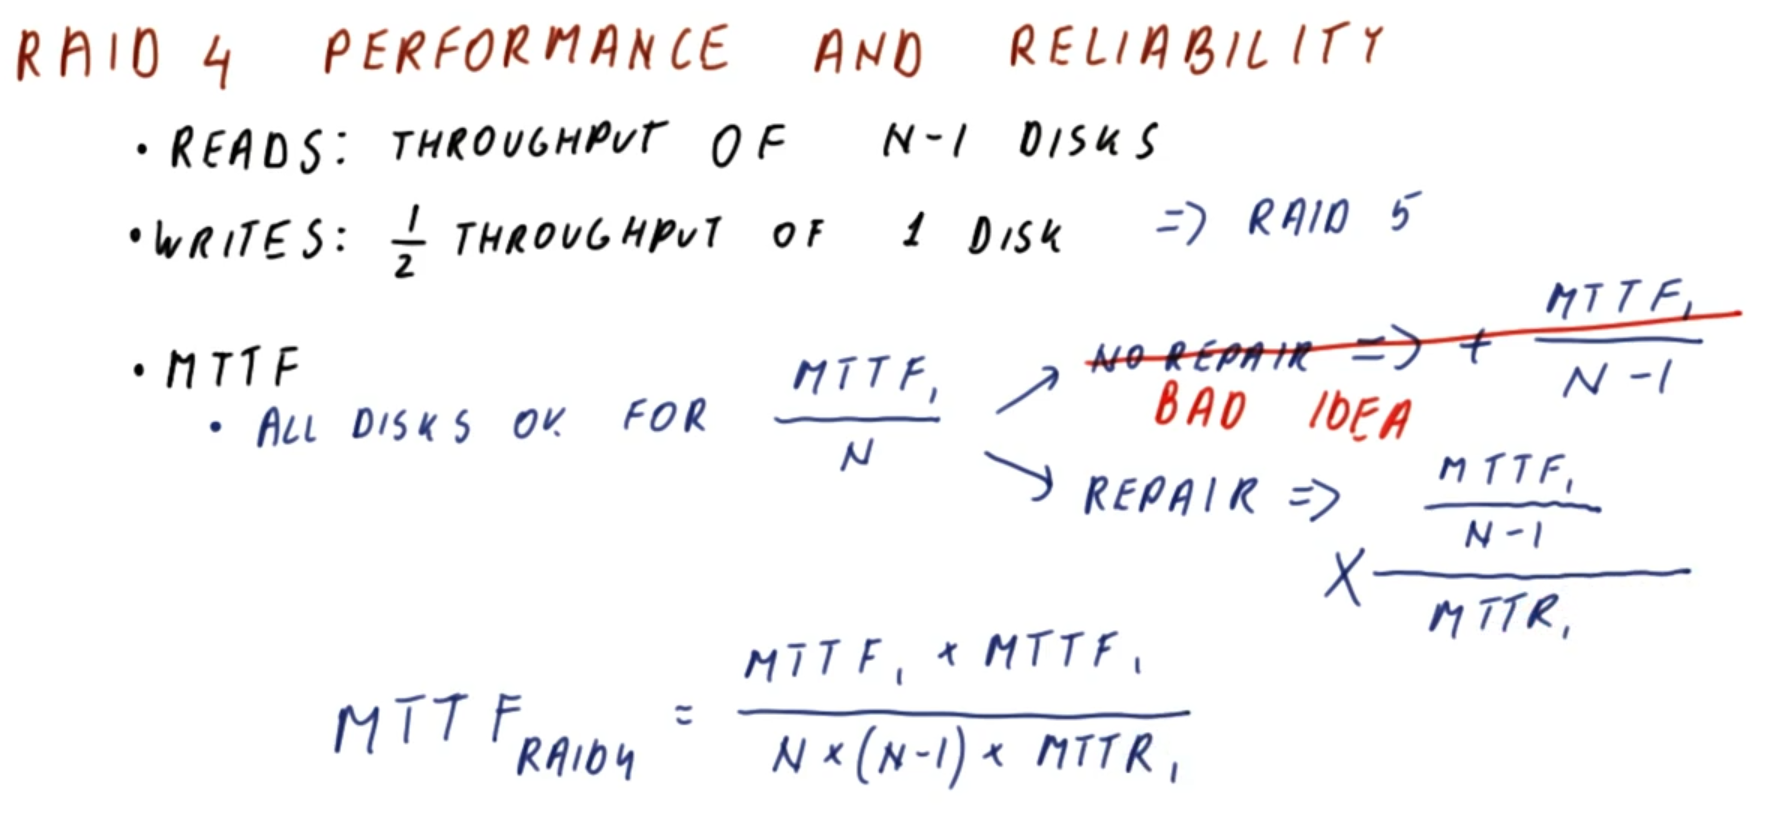 RAID 4 PERFORMANCE AND RELIABILITY
• READS: THROUGHPUT OF N-1 DISKS
• WRITES: 1/2 THROUGHPUT OF 1 DISK => RAID 5
• MTTF
• ALL DISKS OK FOR MTTF₁/N
NO REPAIR => + MTTF₁/N-1
BAD IDEA
REPAIR => × (MTTF₁/N-1)/MTTR₁
MTTF_RAID4 = (MTTF₁ × MTTF₁)/(N×(N-1)×MTTR₁)